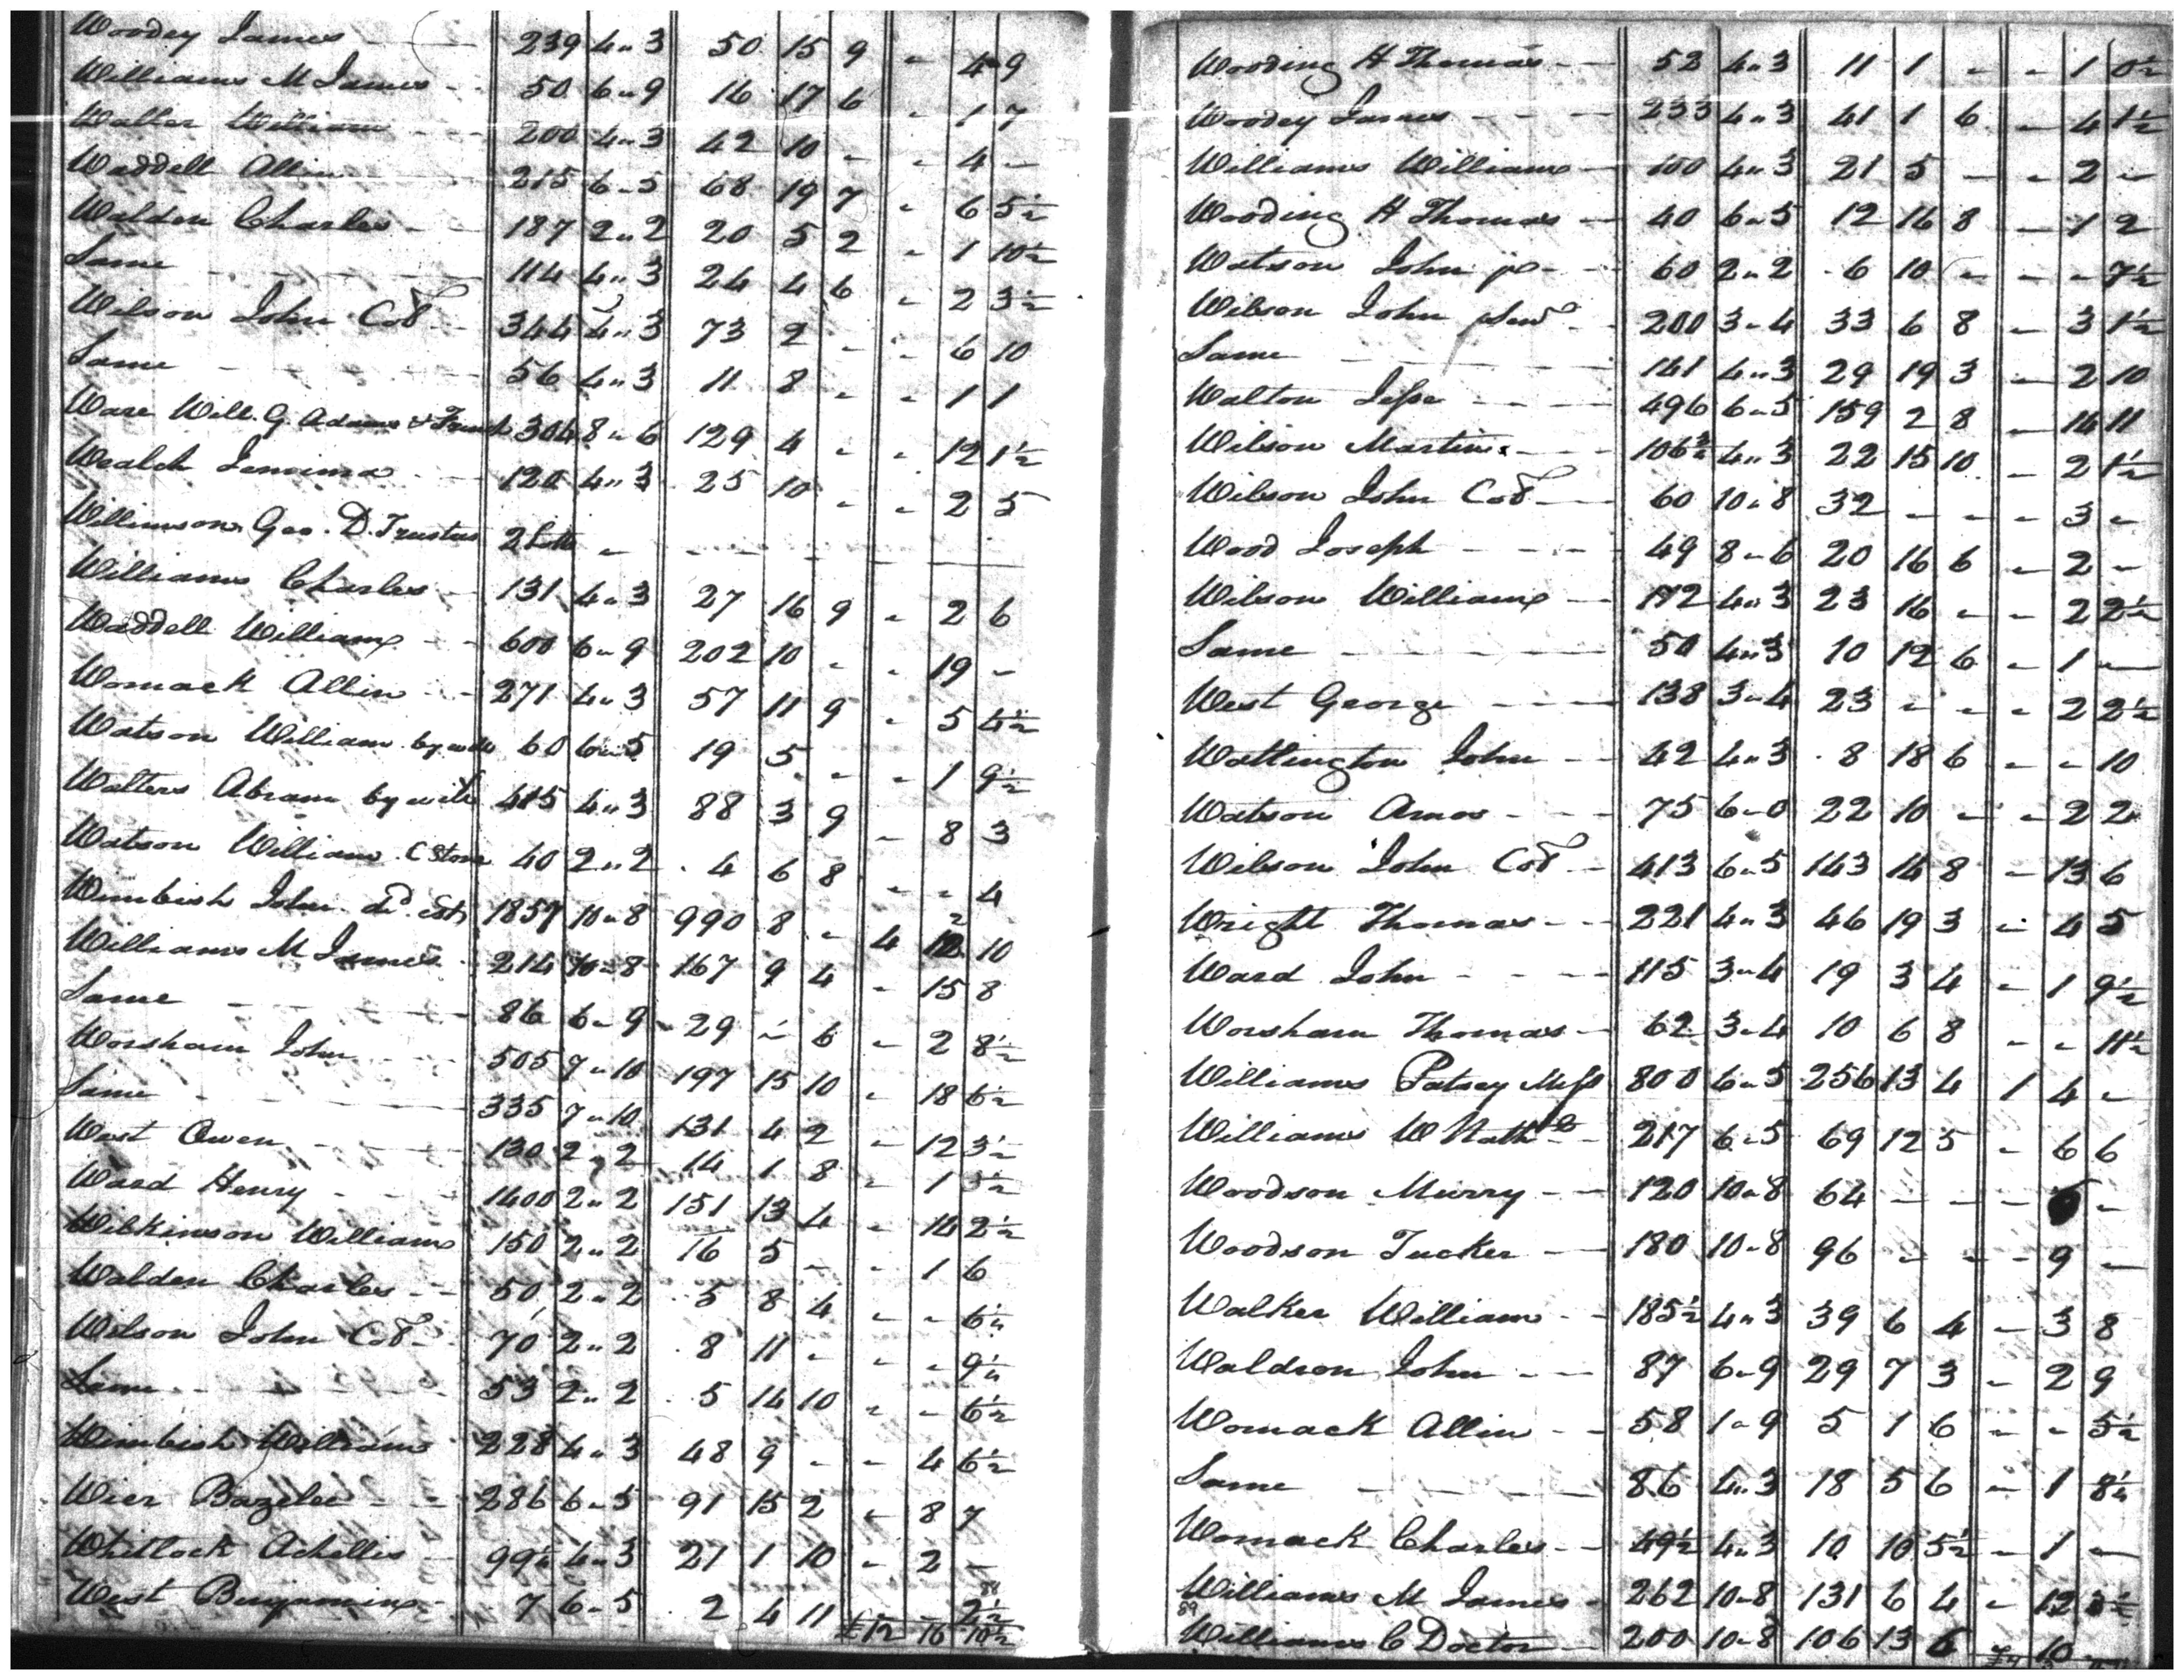 Woodey James 239 4"3 50 15 9 " 4 9
Williams M James 50 6"9 16 17 6 " 1 7
Waller William 200 4"3 42 10 " " 4 "
Waddell Allin 215 6"5 68 19 7 " 6 5½
Walden Charles 187 2"2 20 5 2 " 1 10½
Same 114 4"3 24 4 6 " 2 3½
Wilson John Col 344 4"3 73 2 " " 6 10
Same 56 4"3 11 8 " " 1 1
Ware Will. G. Adams & 304 8"6 129 4 " " 12 1½
Wealch Jemima 120 4"3 25 10 " " 2 5
Williamson Geo. D. Trustus 2 Lotts "
Williams Charles 131 4"3 27 16 9 " 2 6
Waddell William 600 6"9 202 10 " " 19 "
Womack Allin 271 4"3 57 11 9 " 5 4½
Watson William by wife 60 6"5 19 5 " " 1 9½
Walters Abram by wife 415 4"3 88 3 9 " 8 3
Watson William C Stone 40 2"2 4 6 8 " " 4
Wimbish John dd. est 1857 10"8 990 8 " 4 12 10
Williams M James 214 10"8 167 9 4 " 15 8
Same 86 6"9 29 " 6 " 2 8½
Worsham John 505 7"10 197 15 10 " 18 6½
Same 335 7"10 131 4 2 " 12 3½
West Owen 130 2"2 14 1 8 " 1 3½
Ward Henry 1400 2"2 151 13 4 " 14 2½
Wilkinson William 150 2"2 16 5 " " 1 6
Walden Charles 50 2"2 5 8 4 " " 6¼
Wilson John Col 70 2"2 8 11 " " " 9¼
Same 53 2"2 5 14 10 " " 6½
Wimbish William 228 4"3 48 9 " " 4 6½
Wier Bazelee 286 6"5 91 15 2 " 8 7
Whitlock Achillis 99¼ 4"3 21 1 10 " 2 "
West Benjamin 7 6"5 2 4 11 " " 2½
88
£12 16 10½
Wooding H Thomas 52 4"3 11 1 " " 1 0½
Woodey James 233 4"3 41 1 6 " 4 1½
Williams William 100 4"3 21 5 " " 2 "
Wooding H Thomas 40 6"5 12 16 8 " 1 2
Watson John jr 60 2"2 6 10 " " " 7½
Wilson John Senr 200 3"4 33 6 8 " 3 1½
Same 141 4"3 29 19 3 " 2 10
Walton Jesse 496 6"5 159 2 8 " 14 11
Wilson Martin 106¾ 4"3 22 15 10 " 2 1½
Wilson John Col 60 10"8 32 " " " 3 "
Wood Joseph 49 8"6 20 16 6 " 2 "
Wilson William 172 4"3 23 16 " " 2 2½
Same 50 4"3 10 12 6 " 1 "
West George 138 3"4 23 " " " 2 2½
Watlington John 42 4"3 8 18 6 " " 10
Watson Amos 75 6"0 22 10 " " 2 2
Wilson John Col 413 6"5 143 14 8 " 13 6
Wright Thomas 221 4"3 46 19 3 " 4 5
Ward John 115 3"4 19 3 4 " 1 9½
Worsham Thomas 62 3"4 10 6 8 " " 11½
Williams Patsey Miss 800 6"5 256 13 4 1 4 "
Williams W Nathl 217 6"5 69 12 5 " 6 6
Woodson Murry 120 10"8 64 " " " "
Woodson Tucker 180 10"8 96 " " " 9 "
Walker William 185½ 4"3 39 6 4 " 3 8
Waldson John 87 6"9 29 7 3 " 2 9
Womack Allin 58 1"9 5 1 6 " " 5½
Same 86 4"3 18 5 6 " 1 8¼
Womack Charles 49½ 4"3 10 10 5½ " 1 "
Williams M James 262 10"8 131 6 4 " 12 3½
89
Williams C Doctor 200 10"8 106 13 6 " 10